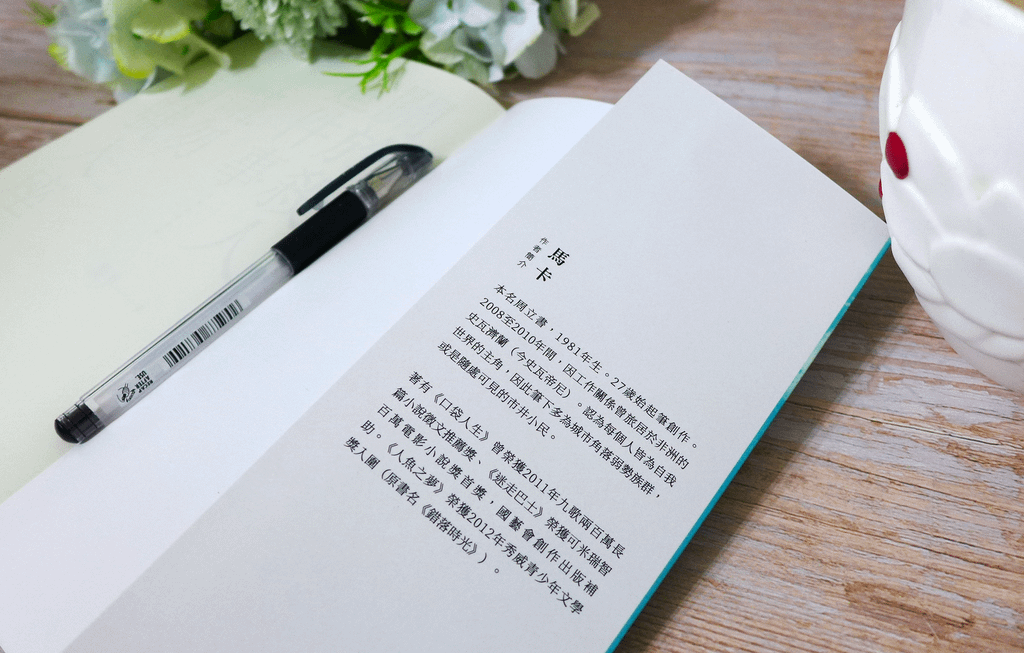 作者簡介
馬卡
本名周立書，1981年生。27歲始起筆創作。
2008至2010年間，因工作關係曾旅居於非洲的
史瓦濟蘭（今史瓦帝尼）。認為每個人皆為自我
世界的主角，因此筆下多為城市角落弱勢族群，
或是隨處可見的市井小民。
著有《口袋人生》曾榮獲2011年九歌兩百萬長
篇小說徵文推薦獎、《迷走巴士》榮獲可米瑞智
百萬電影小說獎首獎，國藝會創作出版補
助。《人魚之夢》榮獲2012年秀威青少年文學
獎入圍（原書名《錯落時光》）。